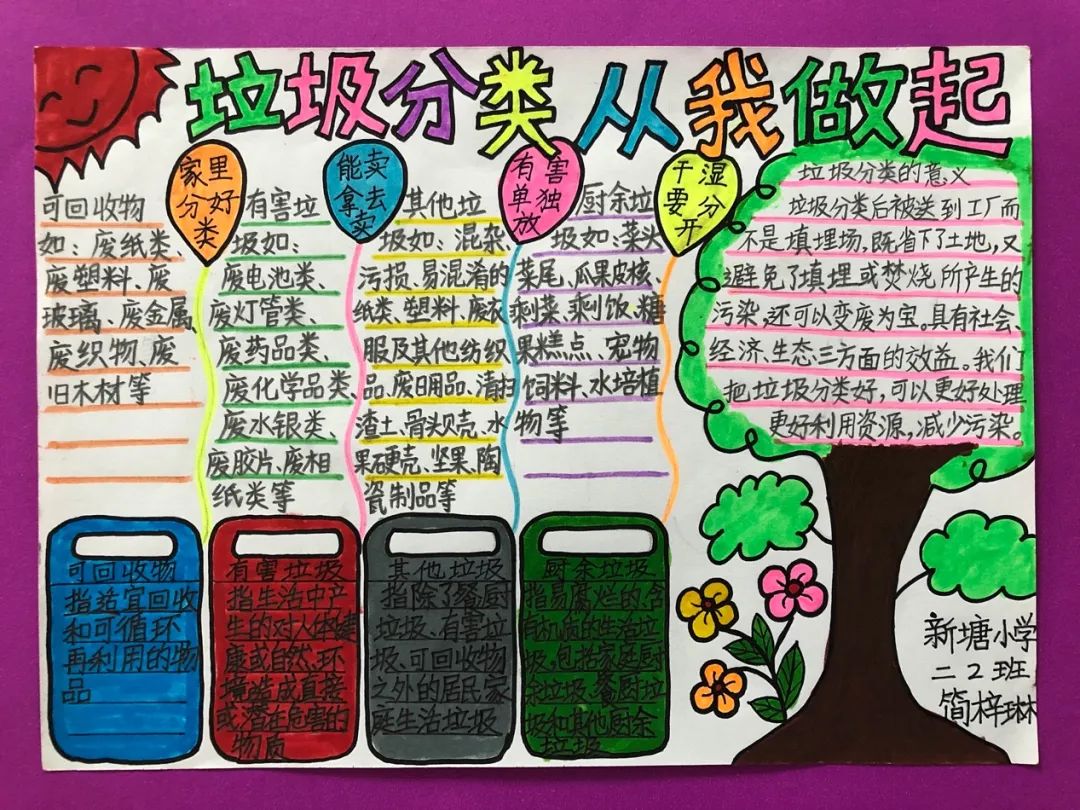 垃圾分类从我做起
家里
分好
类
能卖
拿去
卖
有害
单独
放
干湿
要分
开
可回收物
如：废纸类、
废塑料、废
玻璃、废金属、
废织物、废
旧木材等
有害垃
圾如：
废电池类、
废灯管类、
废药品类、
废化学品类、
废水银类、
废胶片、废相
纸类等
其他垃
圾如：混杂、
污损、易混淆的
纸类、塑料、废衣
服及其他纺织
品、废日用品、清扫
渣土、骨头贝壳、水
果硬壳、坚果、陶
瓷制品等
厨余垃
圾如：菜头
菜尾、瓜果皮核、
剩菜、剩饭、糖
果糕点、宠物
饲料、水培植
物等
垃圾分类的意义
垃圾分类后被送到工厂而
不是填埋场，既省下了土地，又
避免了填埋或焚烧所产生的
污染，还可以变废为宝。具有社会、
经济、生态三方面的效益。我们
把垃圾分类好，可以更好处理
更好利用资源，减少污染。
可回收物
指适宜回收
和可循环
再利用的物
品
有害垃圾
指生活中产
生的对人体健
康或自然、环
境造成直接
或潜在危害的
物质
其他垃圾
指除了餐厨
垃圾、有害垃
圾、可回收物
之外的居民家
庭生活垃圾
厨余垃圾
指易腐烂的，含
有机质的生活垃
圾，包括家庭厨
余垃圾、餐厨垃
圾和其他厨余
垃圾
新塘小学
二2班
简梓琳